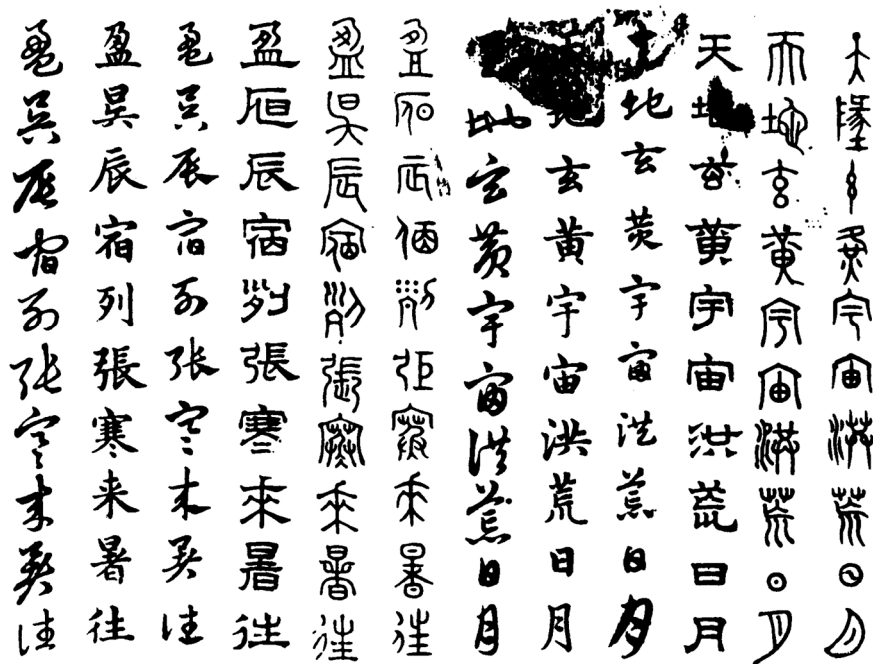 天墬玄黃宇宙洪荒日月
天地玄黃宇宙洪荒日月
天地玄黃宇宙洪荒日月
地玄黄宇宙洪荒日月
玄黄宇宙洪荒日月
地玄黄宇宙洪荒日月
盈昃辰宿列弡寒來暑往
盈昃辰宿列張寒來暑往
盈昃辰宿列張寒来暑往
盈昃辰宿列张寒来暑往
盈昃辰宿列張寒来暑往
盈昃辰宿列张寒来暑往